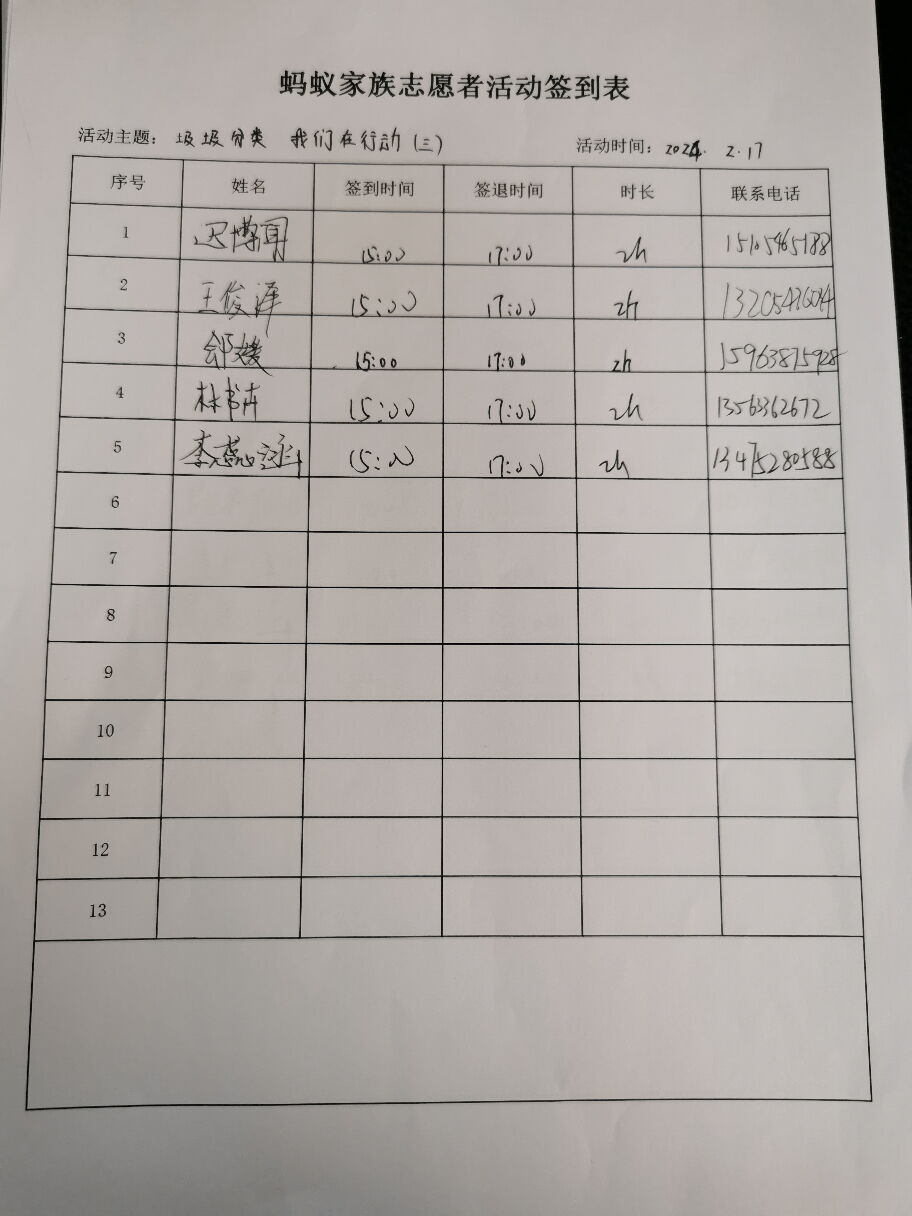 蚂蚁家族志愿者活动签到表
活动主题： 圾圾分类 我们在行动（三） 活动时间：2024. 2.17
序号 姓名 签到时间 签退时间 时长 联系电话
1 迟博闻 15:00 17:00 2h
2 王俊泽 15:00 17:00 2h
3 邰媛 15:00 17:00 2h 15963815928
4 林书卉 15:00 17:00 2h 13563362672
5 15:00 17:00 2h 13475280588
6
7
8
9
10
11
12
13